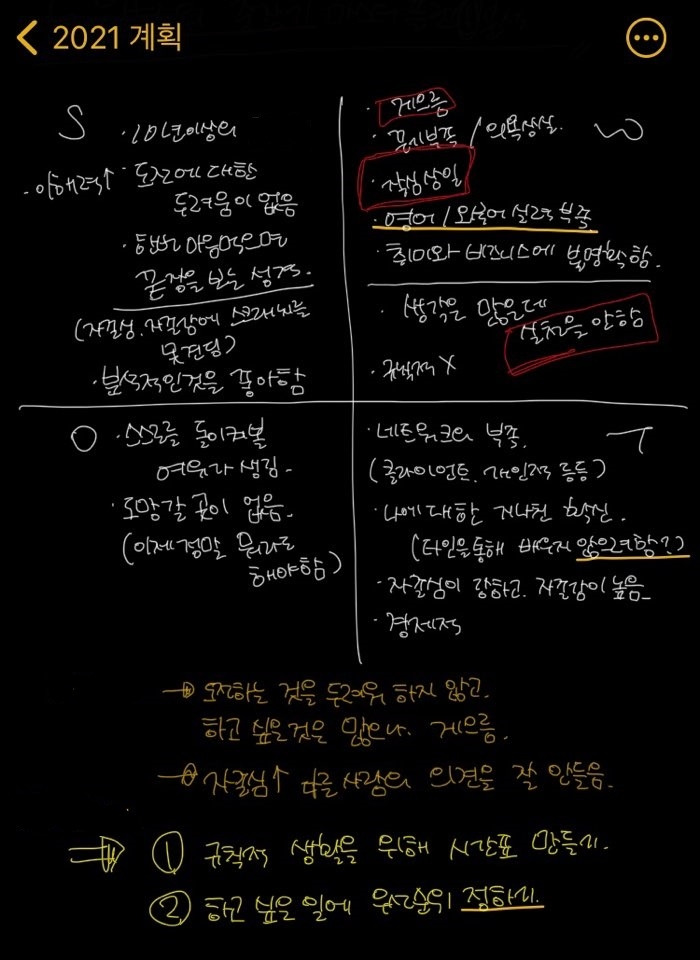 2021 계획
S
· 10년이상의
· 이해력↑ · 도전에 대한
두려움이 없음
· 한번 마음먹으면
끝장을 보는 성격.
(자존심, 자존감에 스크래치를
못견딤)
· 분석적인것을 좋아함
W
· 게으름
· 끈기부족 / 의욕상실.
· 작심삼일
· 영어 / 외국어 실력 부족.
· 취미와 비즈니스에 불명확함.
· 생각은 많은데
실천을 안함
· 규칙적 X
O
· 스스로를 돌이켜볼
여유가 생김.
· 도망갈 곳이 없음.
(이제 정말 뭐라도
해야함)
T
· 네트워크의 부족.
(클라이언트, 개인적 등등)
· 나에 대한 지나친 확신.
(타인을통해 배우지 않으려함?)
· 자존심이 강하고, 자존감이 높음
· 경제적
→ 도전하는 것을 두려워 하지 않고.
하고 싶은것은 많으나 게으름.
→ 자존심↑ 다른사람의 의견을 잘 안들음.
⇒ ① 규칙적 생활을 위해 시간표 만들기.
② 하고 싶은 일에 우선순위 정하기.